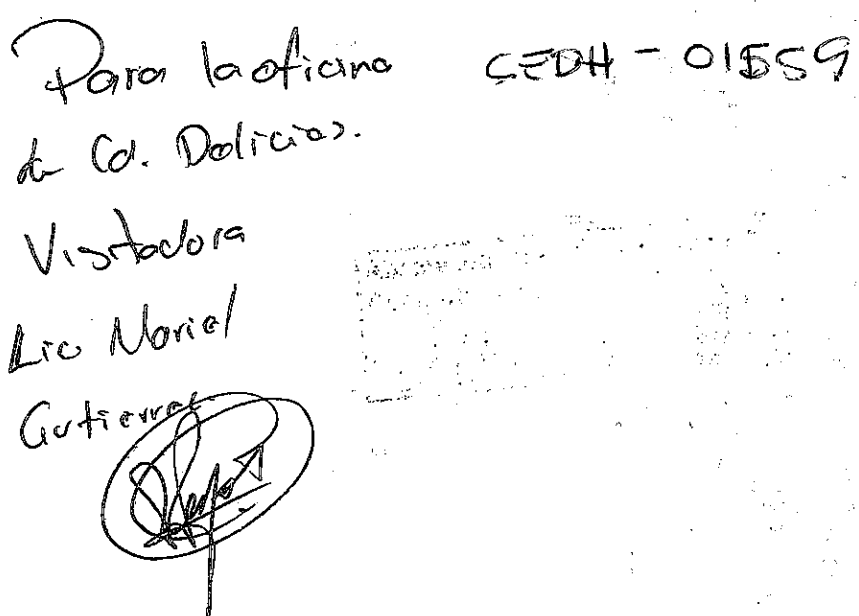 Para la oficina
CEDH - 01559
de Cd. Delicias.
Visitadora
Lic Mariel
Gutierrez